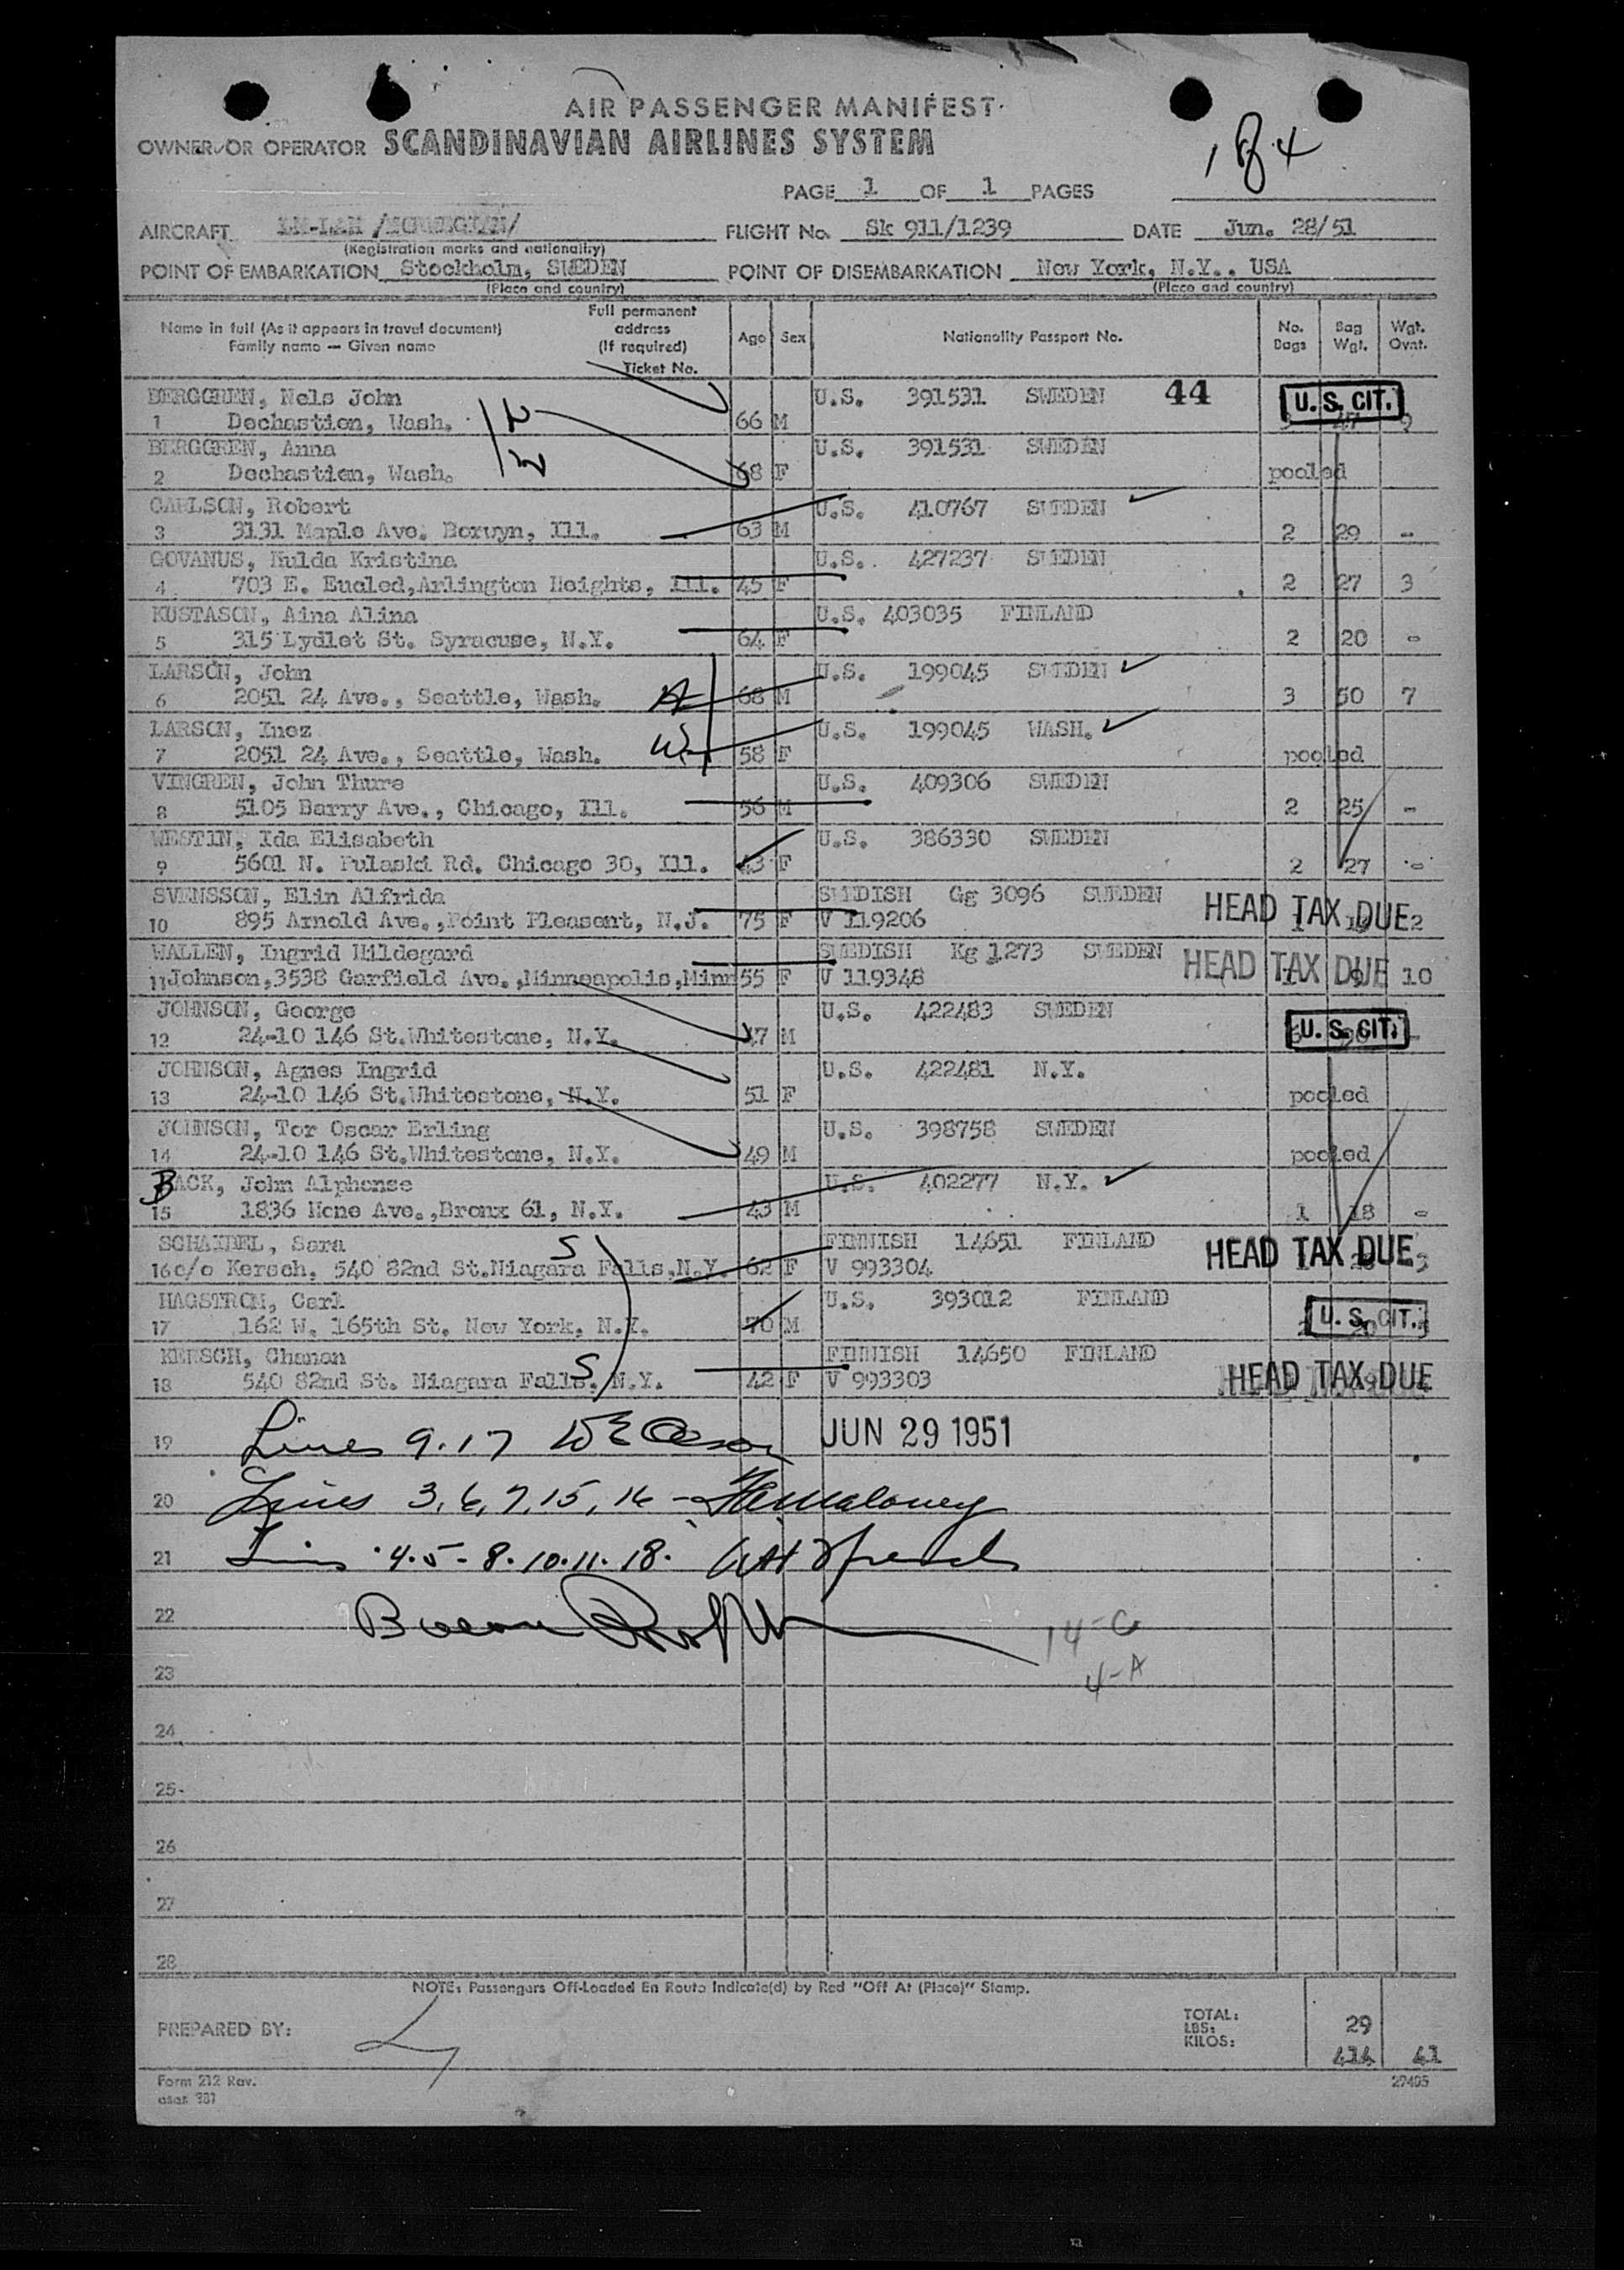 AIR PASSENGER MANIFEST
OWNER OR OPERATOR SCANDINAVIAN AIRLINES SYSTEM
1 of 4
PAGE 1 OF 1 PAGES
AIRCRAFT LN-LAM /NORWEGIAN/ FLIGHT No. Sk 911/1239 DATE Jun. 28/51
(Registration marks and nationality)
POINT OF EMBARKATION Stockholm, SWEDEN POINT OF DISEMBARKATION New York, N.Y.. USA
(Place and country) (Place and country)
Name in full (As it appears in travel document) Family name — Given name Full permanent address (If required) Ticket No. Age Sex Nationality Passport No. No. Bags Bag Wgt. Wgt. Ovnt.
BERGGREN, Nels John U.S. 391531 SWEDEN 44 U.S. CIT.
1 Dechastion, Wash. 66 M
BERGGREN, Anna U.S. 391531 SWEDEN
2 Dechastien, Wash. 68 F pooled
CARLSON, Robert U.S. 410767 SWEDEN
3 3131 Maple Ave. Berwyn, Ill. 63 M 2 29 -
GOVANUS, Hulda Kristina U.S. 427237 SWEDEN
4 703 E. Eucled, Arlington Heights, Ill. 45 F 2 27 3
KUSTASON, Aina Alina U.S. 403035 FINLAND
5 315 Lydlet St. Syracuse, N.Y. 64 F 2 20 -
LARSON, John U.S. 199045 SWEDEN
6 2051 24 Ave., Seattle, Wash. 68 M 3 50 7
LARSON, Inez U.S. 199045 WASH.
7 2051 24 Ave., Seattle, Wash. 58 F pooled
VINGREN, John Thure U.S. 409306 SWEDEN
8 5105 Barry Ave., Chicago, Ill. 56 M 2 25 -
WESTIN, Ida Elisabeth U.S. 386330 SWEDEN
9 5601 N. Pulaski Rd. Chicago 30, Ill. 43 F 2 27 -
SVENSSON, Elin Alfrida SWEDISH Gg 3096 SWEDEN HEAD TAX DUE
10 895 Arnold Ave., Point Pleasent, N.J. 75 F V 119206 2
WALLEN, Ingrid Hildegard SWEDISH Kg 1273 SWEDEN HEAD TAX DUE
11 Johnson, 3538 Garfield Ave., Minneapolis, Minn 55 F V 119348 10
JOHNSON, George U.S. 422483 SWEDEN U.S. CIT.
12 24-10 146 St. Whitestone, N.Y. 47 M
JOHNSON, Agnes Ingrid U.S. 422481 N.Y.
13 24-10 146 St. Whitestone, N.Y. 51 F pooled
JOHNSON, Tor Oscar Erling U.S. 398758 SWEDEN
14 24-10 146 St. Whitestone, N.Y. 49 M pooled
BACK, John Alphonse U.S. 402277 N.Y.
15 1836 Hone Ave., Bronx 61, N.Y. 43 M 1 18 -
SCHAIDEL, Sara S FINNISH 14651 FINLAND HEAD TAX DUE
16 c/o Kersch, 540 82nd St. Niagara Falls, N.Y. 62 F V 993304 3
HAGSTROM, Carl U.S. 393012 FINLAND U.S. CIT.
17 162 W. 165th St. New York, N.Y. 70 M
KERSCH, Chanon S FINNISH 14650 FINLAND HEAD TAX DUE
18 540 82nd St. Niagara Falls, N.Y. 42 F V 993303
19 Lines 9.17 JUN 29 1951
20 Lines 3, 6, 7, 15, 16 - Maloney
21 Lines 4.5-8.10.11.18.
22
14-C
23
4-A
24
25
26
27
28
NOTE: Passengers Off-Loaded En Route Indicate(d) by Red "Off At (Place)" Stamp.
PREPARED BY: TOTAL: 29
LBS:
KILOS: 414 41
Form 212 Rev. 27405